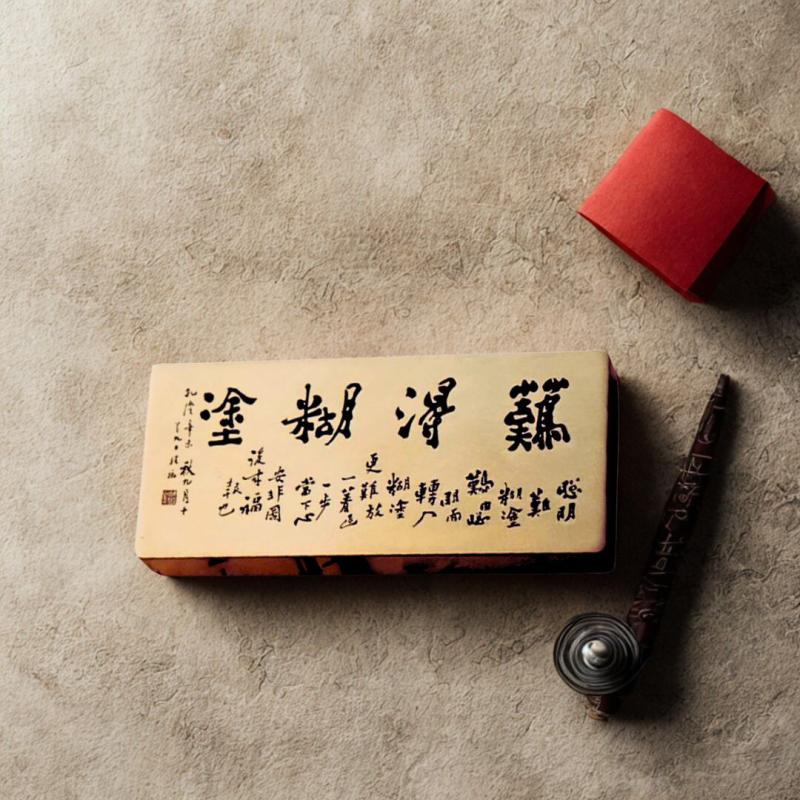 難得糊塗
聰明
難
糊塗
難由聰
明而
轉入
糊塗
更難放
一著退
一步
當下心
安非圖
後來福
報也
乾隆辛未秋九月十
有九日板橋